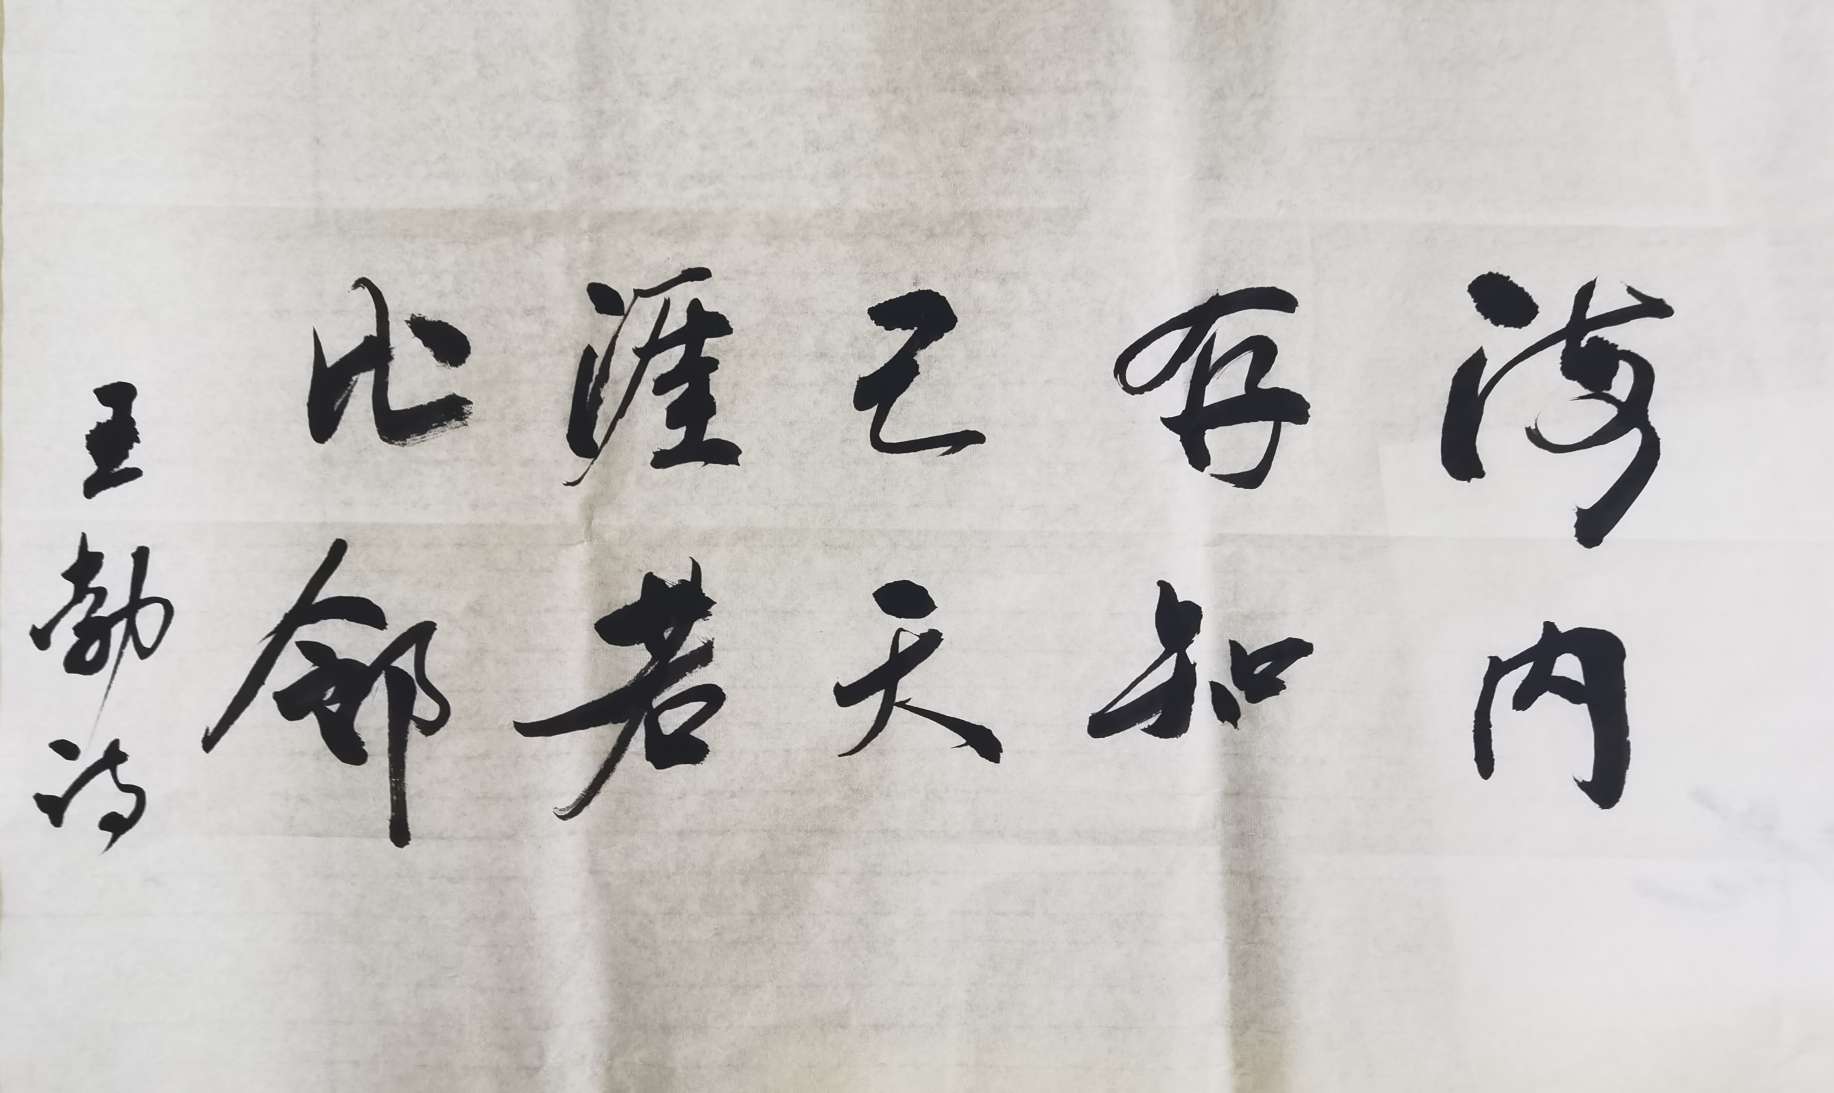 海内
存知
己天
涯若
比邻
王勃诗